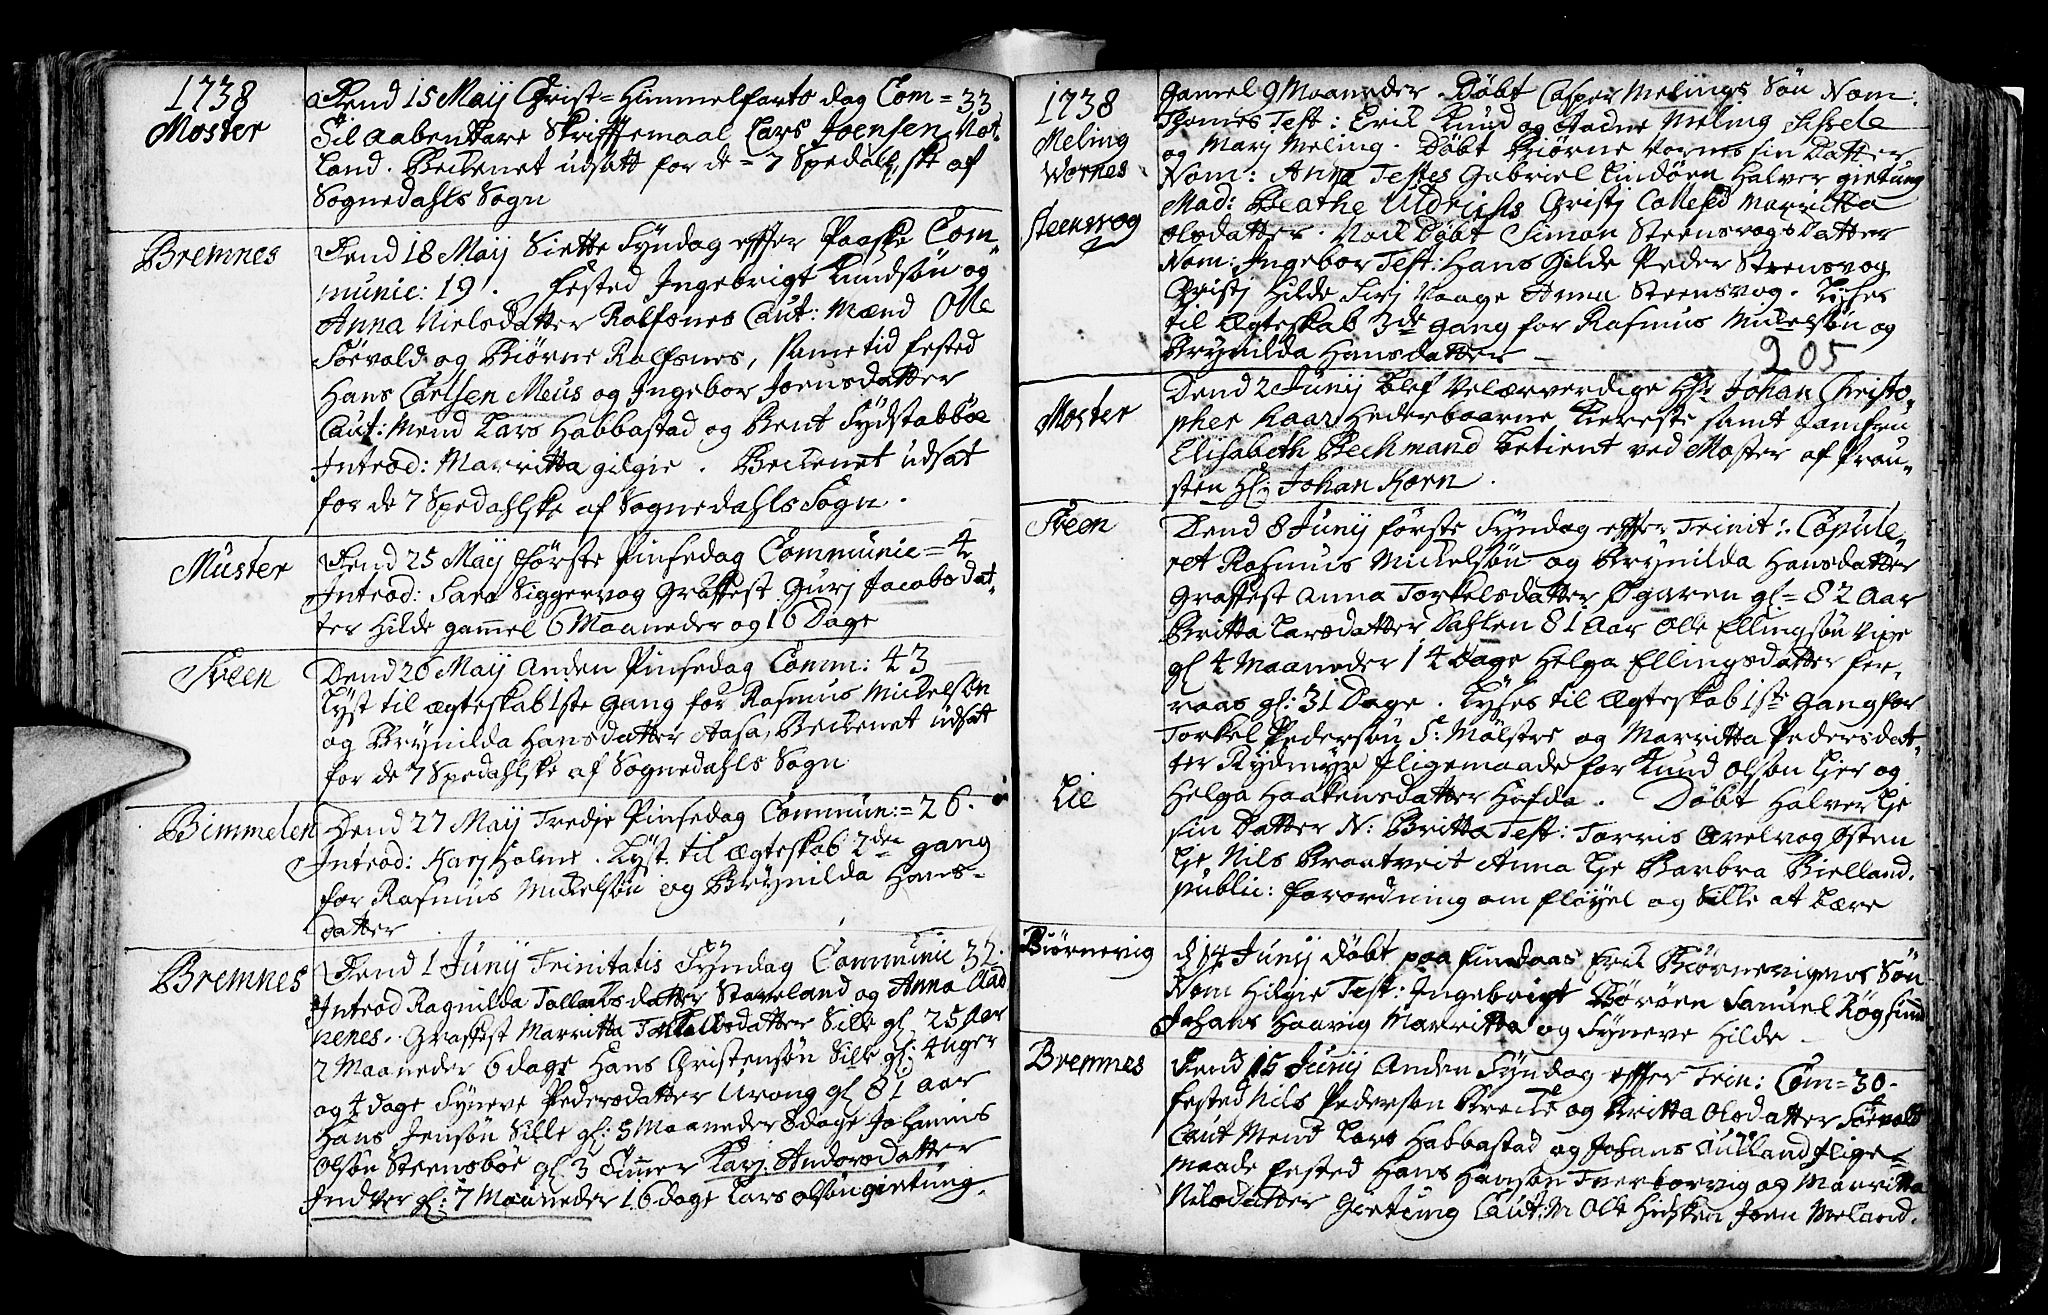 1738
Moster
Dend 15 Maij Christ=Himmelfarts dag Com=33
Til aabenbare Skrifftemaal Lars Joensen Not
land. Beckenet udsatt for de=7 Spedalske af
Sognedahls Sogn
Bremnes
Dend 18 Maij Siette Syndag effter Paaske Com„
munic: 19. fested Ingebrigt Knudsøn og
Anna Nielsdatter Rolfsnes Caut: Mænd Olle
Søevold og Biørne Rolfsnes, samme tid fested
Hans Carlsen Meus og Ingebor Joensdatter
Caut: Mend Lars Habbastad og Bent Sydstabbøe
Introd: Marritta gilgie. Beckenet udsat
for de 7 Spedahlske af Sognedahls Sogn.
Muster
Dend 25 Maij første Pinsedag Communic=4
Introd: Sara Siggervog Graffest Guri Jacobsdat„
ter Hilde gamel 6 Maaneder og 16 Dage
Sveen
Dend 26 Maij Anden Pinsedag Comm: 43
Lyst til ægteskab 1ste gang for Rasmus Mickelsøn
og Brynilda Hansdatter Aasa, Beckenet udsat
for de 7 Spedahlske af Sognedahls Sogn
Bimmelen
Dend 27 Maij Tredje Pinsedag Commun:=26.
Introd: Karj Holme. Lyst til ægteskab 2den gang
for Rasmus Mickelsøn og Brynilda Hans-
datter
Bremnes
Dend 1 Junij Trinitatis Syndag Communic 32.
Introd Ragnilda Tollaksdatter Staveland og Anna Aad
penes. Graffest Marritta Torkelsdatter Sille gl. 25 Aar
2 Maaneder 6 dage Hans Christensøn Sille gl: 4 uger
og 4 dage Syneve Pedersdatter Urang gl 81 aar
Hans Jensøn Sille gl: 5 Maaneder 8 dage Johannis
Olsøn Steensbøe gl 3 Timer Karj Andorsdatter
Indver gl: 7 Maaneder 16 dage Lars Olsøn gietung.
1738
Meling
Wernes
Steensvog
gamel 9 Maaneder. Døbt Casper Melings Søn Nom:
Thomes Test: Erik Knud og Aadne Meling Sissele
og Marj Meling. Døbt Biørne Vornes sin Datter
Nom: Anna Testes Gabriel Lindøen Halver gietung
Mad: Beathe Uldrichs Christj Collesed Marritta
Olsdatter. Nock Døbt Simon Steensvogs datter
Nom: Ingebor Test: Hans Hilde Peder Steensvog
Christj Hilde Sirj Vaage Anna Steensvog. Lyses
til Ægteskab 3de gang for Rasmus Mickelsøn og
Brynilda Hansdatter
205
Moster
Dend 2 Junij blef Velærverdige Hr: Johan Christo„
pher Haar Hederbaarne Kiereste samt Jomfru
Elisabeth Bechmand betient ved Moster af Prou„
sten Hr: Johan Korn.
Sveen
Dend 8 Junij første Syndag effter Trinit: Copule„
ret Rasmus Mickelsøn og Brynilda Hansdatter
Graffest Anna Torkelsdatter Øgaren gl=82 Aar
Britta Larsdatter Dahlen 81 Aar Olle Ellingsøn Vige
gl 4 Maaneder 14 Dage Helga Ellingsdatter fer„
raas gl: 31 Dage. Lyses til Ægteskab 1ste gang for
Torkel Pedersøn S: Mølstre og Marritta Pedersdat„
ter Rydmyr sligemaade for Knud Olsøn Lie og
Lie
Helga Haakensdatter Hofda. Døbt Halver Lie
sin datter N: Britta Test: Torris Ørelvog Østen
Lje Nils Braatveit Anna Lje Barbra Bielland.
Public: Forordning om fløyel og Silke at bære
Biørnevig
d 14 Junij døbt paa findaas Erik Biørnevigens Søn
Nom Hilgie Test: Ingebrigt Børøen Samuel Røgsund
Johans Haavig Marritta og Syneve Hilde
Bremnes
Dend 15 Junij Anden Syndag effter Trin: Com=30.
fested Nils Pedersøn Brecke og Britta Olsdatter Søevold
Caut Mend Lars Habbastad og Johans Aulland slige=
maade fested Hans Hansøn Tverborvig og Marritta
Nilsdatter Gietung Caut: M Olle Hidsken Joen Meland.